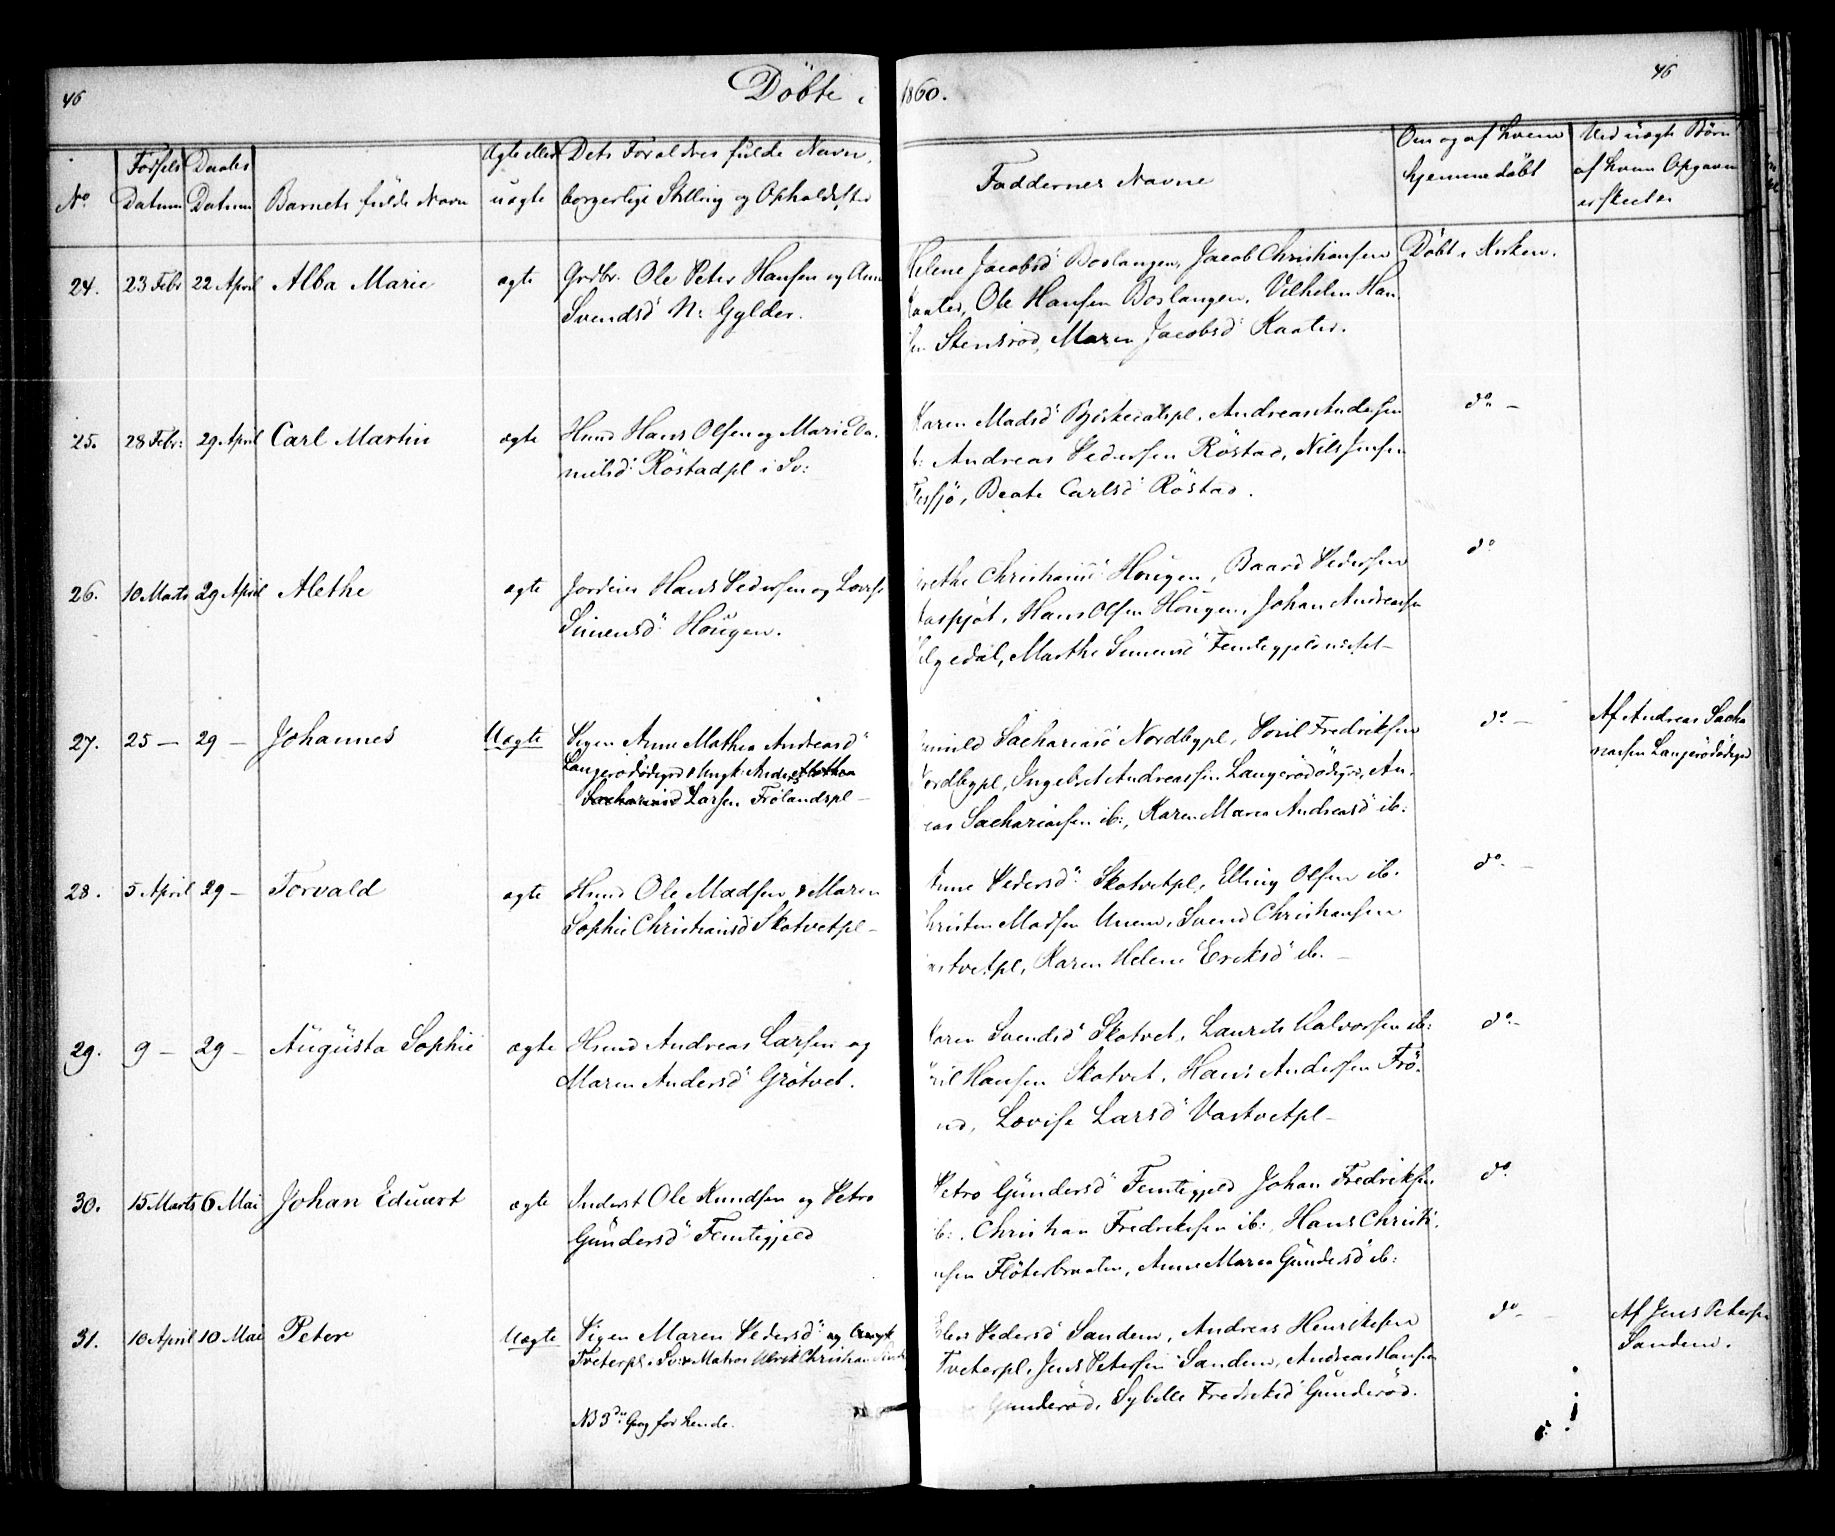 46
Döbte i 1860.
46
No
Fødsels Datum
Daabs Datum
Barnets fulde Navn
Ægte eller uægte
Dets Forældres fulde Navn, borgerlige Stilling og Opholdssted
Faddernes Navne
Om og af hvem hjemmedöbt
Ved uægte Börn af hvem Opgaven er skeet
24. 23 Febr 22 April Alba Marie ægte Grdbr. Ole Peter Hansen og Anne
Svendsd N: Gylder.
Helene Jacobsd Boslangen, Jacob Christiansen
Kaater, Ole Hansen Boslangen, Vilhelm Han-
sen Stensröd, Maren Jacobsd Kaater.
Döbt i Kirken.
25. 28 Febr: 29 April Carl Martin ægte Husmd Hans Olsen og Marie Da-
nielsd Röstadpl i Sv:
Karen Madsd Bjerkedalspl, Andreas Andersen
ib: Andreas Pedersen Röstad, Nils Jensen
Beate Carlsd Röstad.
do –
26. 10 Marts 29 April Alethe ægte Jordeier Hans Pedersen og Lovise
Simensd Hougen.
Christiansd Hougen, Baard Pedersen
Hans Olsen Hougen, Johan Andreasen
Marthe Simensd
do
27. 25 – 29 – Johannes Uægte Pigen Anne Mathea Andreasd
Langerödödegrd & Ungk. Anders Mathea
Sachariasd Larsen Frölandspl –
Sachariasd Nordbypl, Poul Fredriksen
Nordbypl, Ingebret Andreassen Langerödödegrd, An-
dreas Sachariassen ib:, Karen Maria Andreasd ib:
do –
Af Andreas Sacha
riassen Langerödödegrd
28. 5 April 29 – Torvald ægte Husmd Ole Madsen & Maren
Sophie Christiansd Skotvetpl –
Anne Pedersd Skotvetpl, Elling Olsen ib.
Christen Madsen Unem, Svend Christiansen
Vastvetpl, Karen Helene Eriksd ib. –
do –
29. 9 – 29 – Augusta Sophie ægte Husmd Andreas Larsen og
Maren Andersd Grötvet.
Karen Svendsd Skotvet, Laurits Halvorsen ib:
Hansen Skotvet, Hans Andersen Frö-
land, Lovise Larsd Vastvetpl –
do –
30. 15 Marts 6 Mai Johan Eduart ægte Inderst Ole Knudsen og Petra
Gundersd Femtegjeld
Petra Gundersd Femtegjeld Johan Fredriksen
ib:. Christian Fredriksen ib:, Hans Christi-
ansen Flöterbraaten, Anne Maria Gundersd ib:
do
31. 10 April 10 Mai Peter Uægte Pigen Maren Pedersd og
Tveterpl i Sv: Matros Ulrik Christian
NB 3die Gang for hende.
Elen Pedersd Sandem, Andreas Henriksen
Tveterpl, Jens Petersen Sandem, Andreas Hansen
Gunderöd, Sybille Fredriksd Gunderöd.
do –
Af Jens Petersen
Sandem.